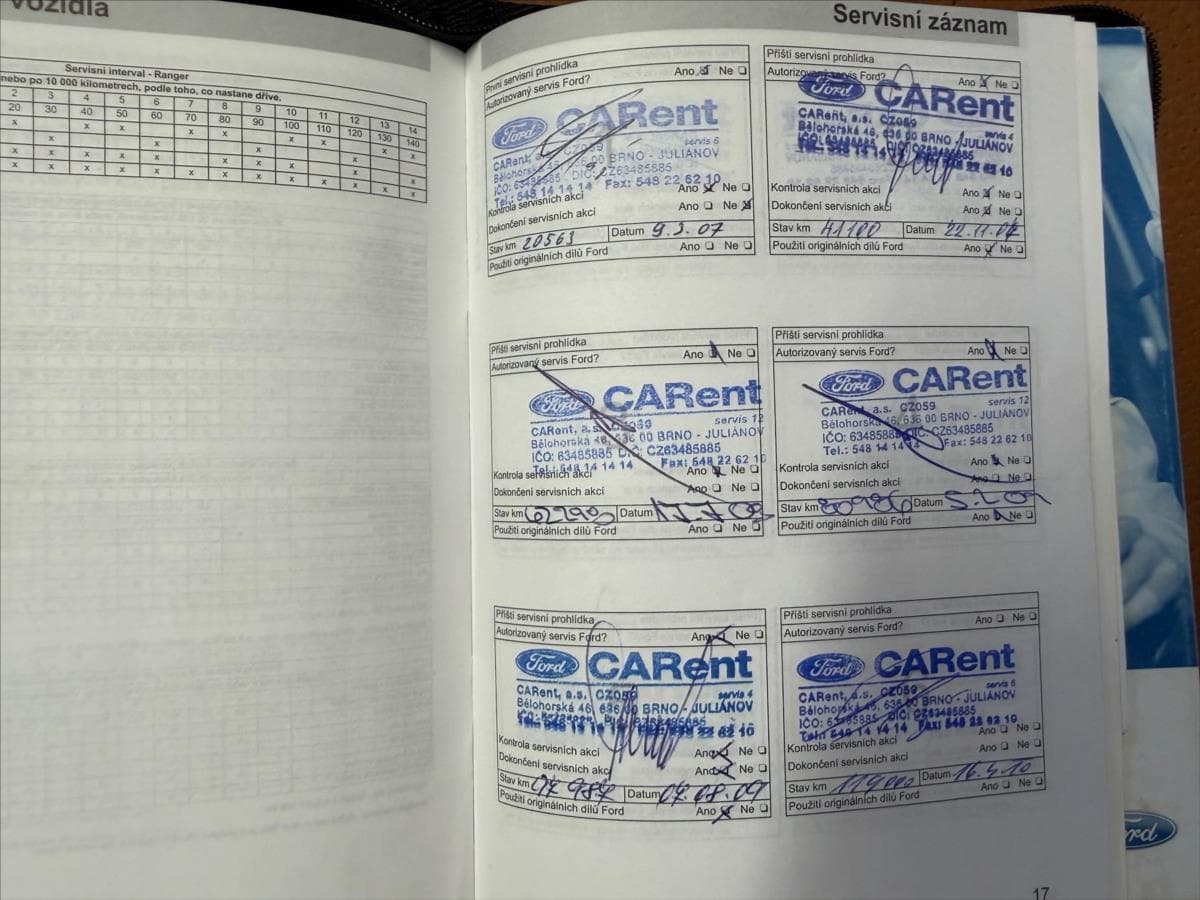 vozidla
Servisní interval - Ranger
nebo po 10 000 kilometrech, podle toho, co nastane dříve.
2 3 4 5 6 7 8 9 10 11 12 13 14
20 30 40 50 60 70 80 90 100 110 120 130 140
Servisní záznam
První servisní prohlídka
Autorizovaný servis Ford? Ano Ne
Ford CARent
servis 5
CARent, a.s. CZ059
Bělohorská 46, 636 00 BRNO - JULIÁNOV
IČO: 63485885 DIČ: CZ63485885
Tel.: 548 14 14 14 Fax: 548 22 62 10
Kontrola servisních akcí Ano Ne
Dokončení servisních akcí Ano Ne
Stav km 20563 Datum 9.3.07
Použití originálních dílů Ford Ano Ne
Příští servisní prohlídka
Autorizovaný servis Ford? Ano Ne
Ford CARent
servis 4
CARent, a.s. CZ059
Bělohorská 46, 636 00 BRNO - JULIÁNOV
Kontrola servisních akcí Ano Ne
Dokončení servisních akcí Ano Ne
Stav km 41100 Datum 22.11.07
Použití originálních dílů Ford Ano Ne
Příští servisní prohlídka
Autorizovaný servis Ford? Ano Ne
Ford CARent
servis 12
CARent, a.s. CZ059
Bělohorská 46, 636 00 BRNO - JULIÁNOV
IČO: 63485885 DIČ: CZ63485885
Tel.: 548 14 14 14 Fax: 548 22 62 10
Kontrola servisních akcí Ano Ne
Dokončení servisních akcí Ano Ne
Stav km Datum
Použití originálních dílů Ford Ano Ne
Příští servisní prohlídka
Autorizovaný servis Ford? Ano Ne
Ford CARent
servis 12
CARent, a.s. CZ059
Bělohorská 46, 636 00 BRNO - JULIÁNOV
IČO: 63485885 DIČ: CZ63485885
Tel.: 548 14 14 14 Fax: 548 22 62 10
Kontrola servisních akcí Ano Ne
Dokončení servisních akcí Ano Ne
Stav km Datum
Použití originálních dílů Ford Ano Ne
Příští servisní prohlídka
Autorizovaný servis Ford? Ano Ne
Ford CARent
servis 4
CARent, a.s. CZ059
Bělohorská 46, 636 00 BRNO - JULIÁNOV
Kontrola servisních akcí Ano Ne
Dokončení servisních akcí Ano Ne
Stav km Datum 07.08.09
Použití originálních dílů Ford Ano Ne
Příští servisní prohlídka
Autorizovaný servis Ford? Ano Ne
Ford CARent
servis 5
CARent, a.s. CZ059
Bělohorská 46, 636 00 BRNO - JULIÁNOV
IČO: 63485885 DIČ: CZ63485885
Tel.: 548 14 14 14 Fax: 548 22 62 10
Kontrola servisních akcí Ano Ne
Dokončení servisních akcí Ano Ne
Stav km 119000 Datum 16.4.10
Použití originálních dílů Ford Ano Ne
17